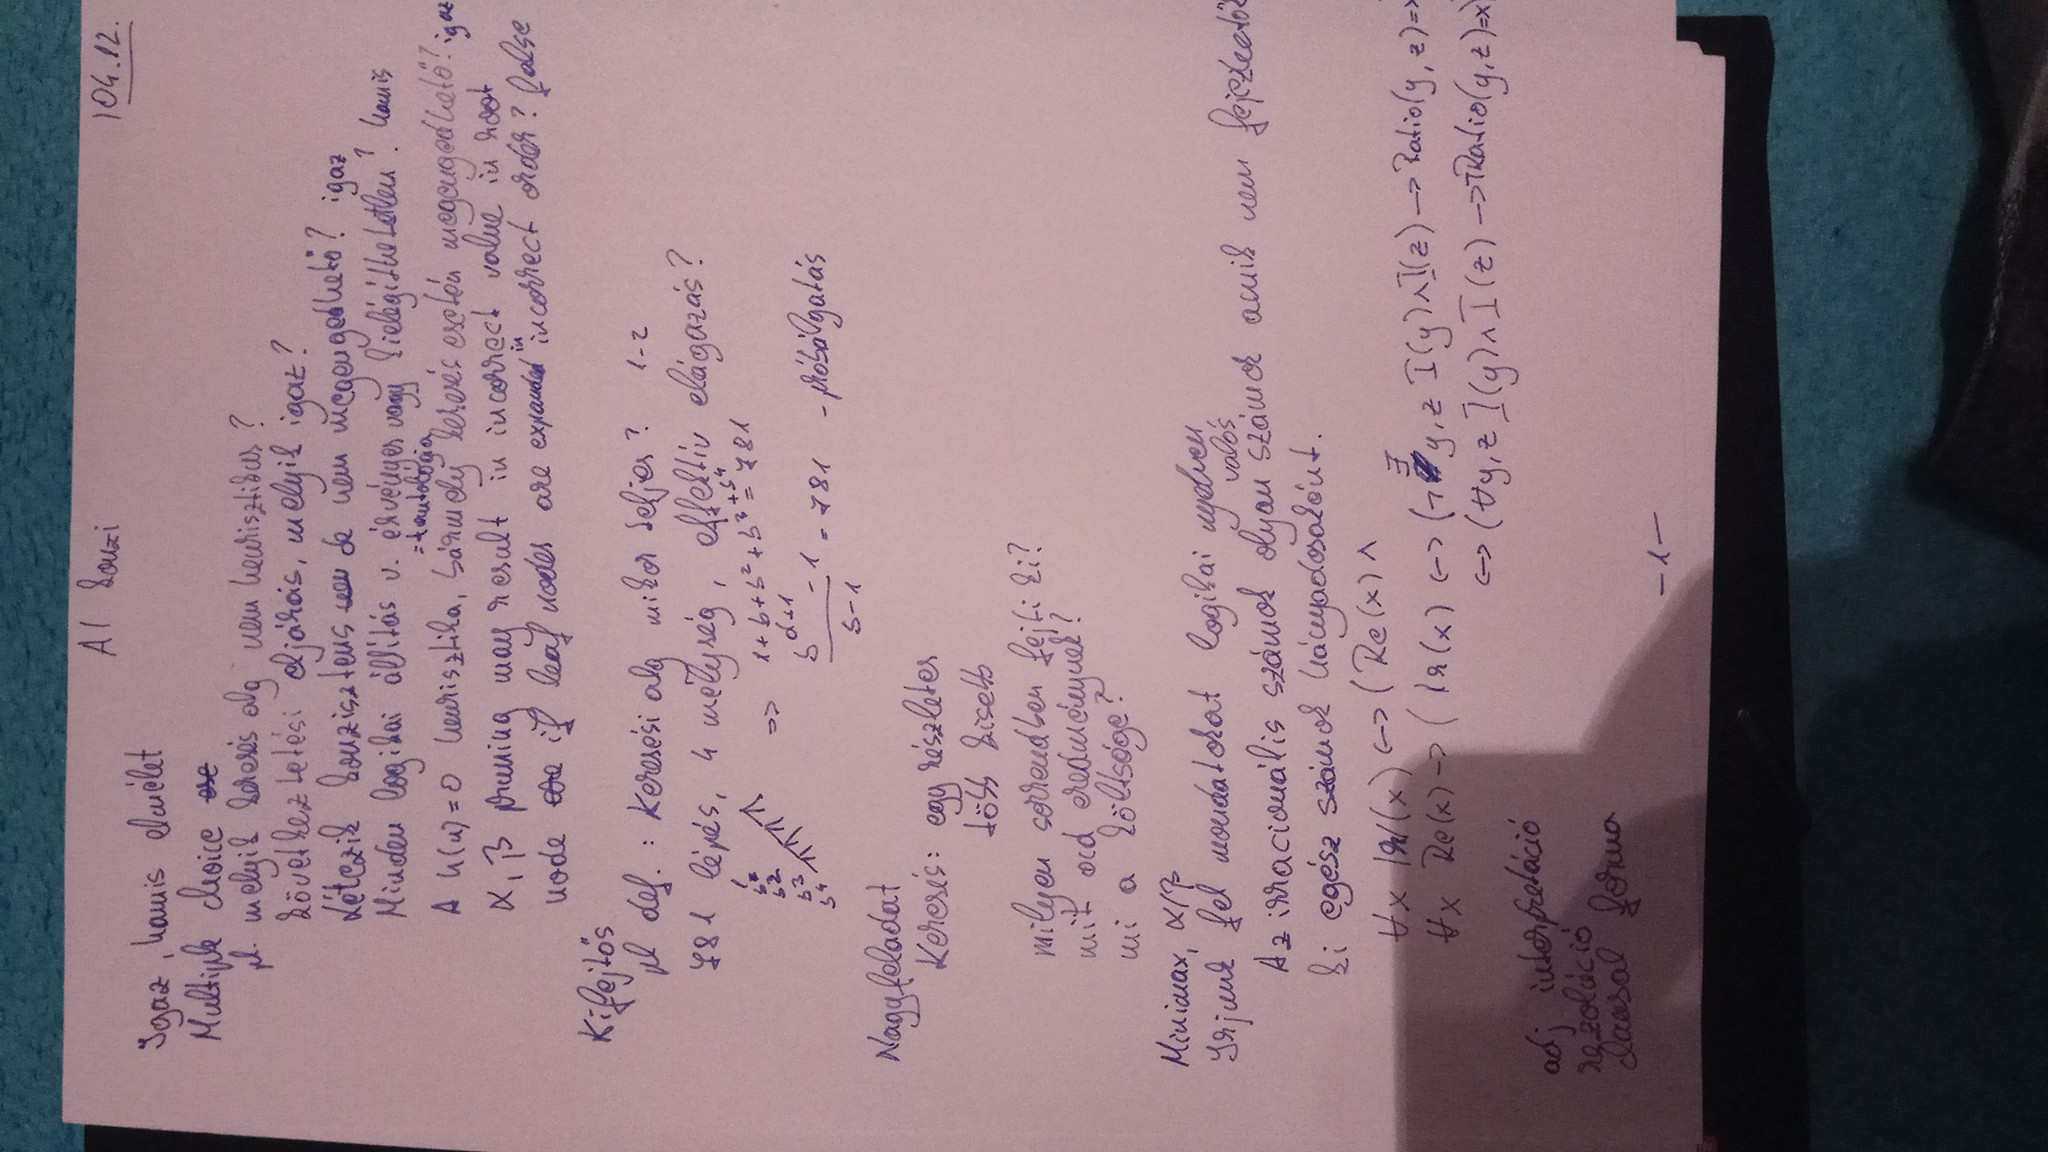 AI konzi
04.12.
Igaz, hamis elmélet
Multiple choice
pl. melyik keresés alg nem heurisztikus?
következtetési eljárás, melyik igaz?
Létezik konzisztens de nem megengedhető? igaz
Minden logikai állítás v. érvényes vagy kielégíthetetlen? hamis
=tautológia
A h(n)=0 heurisztika, bármely keresés esetén megengedhető? igaz
α, β pruning may result in incorrect value in root
node if leaf nodes are expanded in incorrect order? false
Kifejtős
pl def.: Keresési alg mikor teljes? 1-2
781 lépés, 4 mélység, effektív elágazás?
b⁰
b²
b³
b⁴
=> 1+b+b²+b³+b⁴=781
b^d+1 - 1 / b-1 = 781 - próbálgatás
Nagyfeladat
Keresés: egy részletes
több kisebb
milyen sorrendben fejti ki?
mit ad eredményül?
mi a költsége?
Minimax, α/β
Írjunk fel mondatokat logikai nyelven
Az irracionális számok olyan valós számok amik nem fejezhetők
ki egész számok hányadosaként.
∀x Ir(x) <-> (Re(x) ∧
∀x Re(x) -> (Ir(x) <-> (¬∃y,z I(y)∧I(z) -> Ratio(y,z)=x
<-> (∀y,z I(y)∧I(z) -> ¬Ratio(y,z)=x
adj interpretáció
rezolúció
klauzal forma
-1-